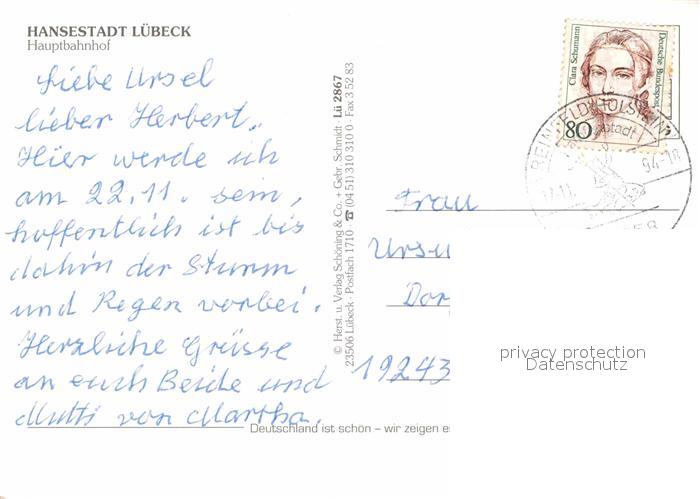 HANSESTADT LÜBECK
Hauptbahnhof
Liebe Ursel
lieber Herbert,
Hier werde ich
am 22.11. sein,
hoffentlich ist bis
dahin der Sturm
und Regen vorbei.
Herzliche Grüsse
an euch Beide und
Mutti von Martha.
© Herst. u. Verlag Schöning & Co. + Gebr. Schmidt · Lü 2867
23506 Lübeck · Postfach 1710 · ☎ (04 51) 310 310 0 · Fax 3 52 83
Clara Schumann
Deutsche Bundespost
80
REINFELD (HOLSTEIN)
Frau
Ursu
Dor
19243
privacy protection
Datenschutz
Deutschland ist schön – wir zeigen es